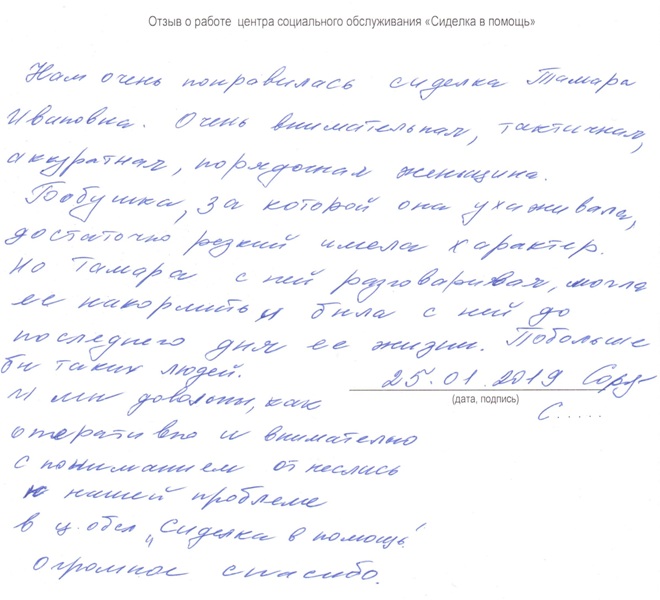 Отзыв о работе центра социального обслуживания «Сиделка в помощь»
Нам очень понравилась сиделка Тамара
Ивановна. Очень внимательная, тактичная,
аккуратная, порядочная женщина.
Бабушка, за которой она ухаживала,
достаточно резкий имела характер.
Но Тамара с ней разговаривая, могла
ее накормить и была с ней до
последнего дня ее жизни. Побольше
бы таких людей.
25.01.2019
(дата, подпись)
С.....
И мы довольны, как
оперативно и внимательно
с пониманием отнеслись
к нашей проблеме
в ц. обсл „Сиделка в помощь".
Огромное спасибо.